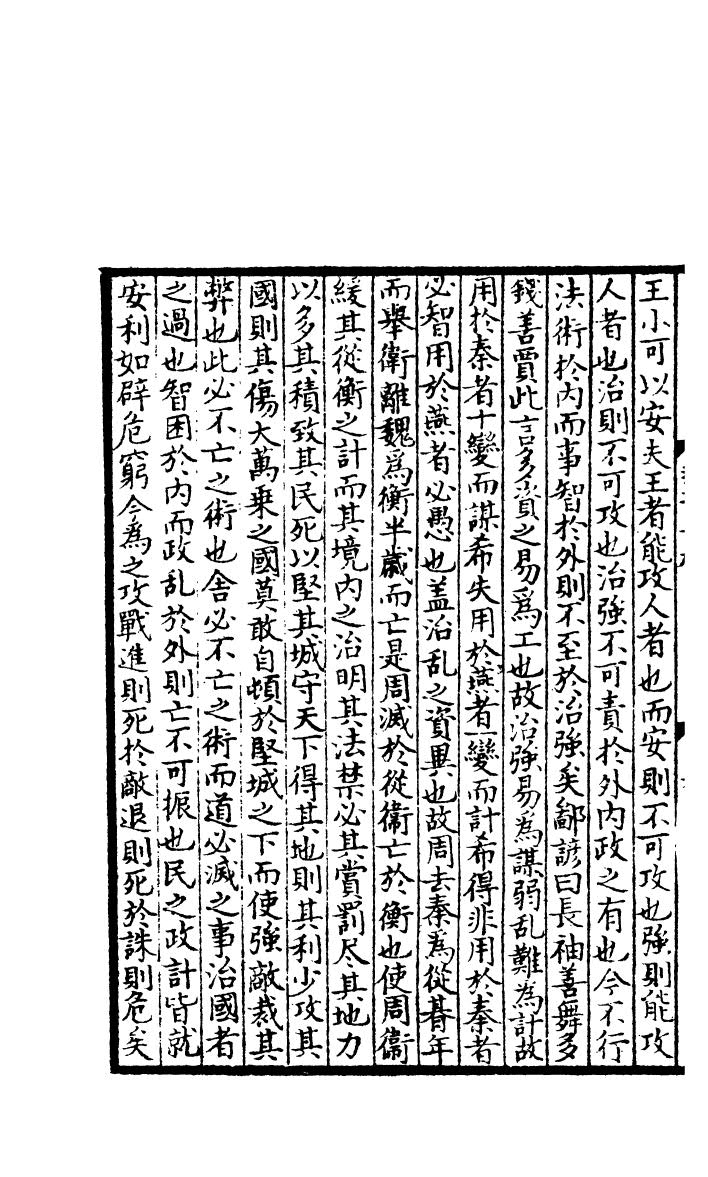 王小可以安夫王者能攻人者也而安則不可攻也強則能攻
人者也治則不可攻也治強不可責於外內政之有也今不行
法術於內而事智於外則不至於治強矣鄙諺曰長袖善舞多
錢善賈此言多資之易爲工也故治強易為謀弱乱難為計故
用於秦者十變而謀希失用於燕者一變而計希得非用於秦者
必智用於燕者必愚也盖治乱之資異也故周去秦為從朞年
而舉衛離魏爲衡半歲而亡是周滅於從衛亡於衡也使周衛
緩其從衡之計而其境內之治明其法禁必其賞罰尽其地力
以多其積致其民死以堅其城守天下得其地則其利少攻其
國則其傷大萬乗之國莫敢自頓於堅城之下而使強敵裁其
弊也此必不亡之術也舍必不亡之術而道必滅之事治國者
之過也智困於內而政乱於外則亡不可振也民之政計皆就
安利如辟危窮今為之攻戰進則死於敵退則死於誅則危矣